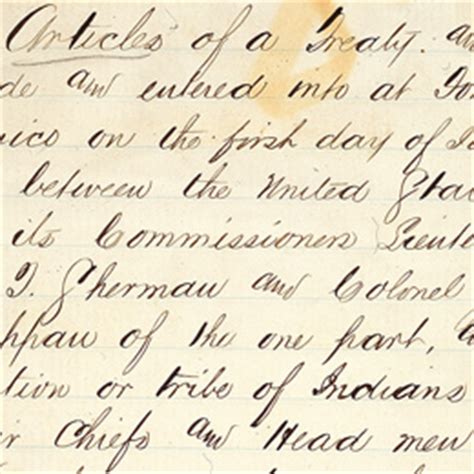 Articles of a Treaty. an
de and entered into at For
ico on the first day of Ju
between the United Sta
its Commissioners Lieute
T. Sherman and Colonel
ppan of the one part, a
tion or tribe of Indians
ir Chiefs and Head men